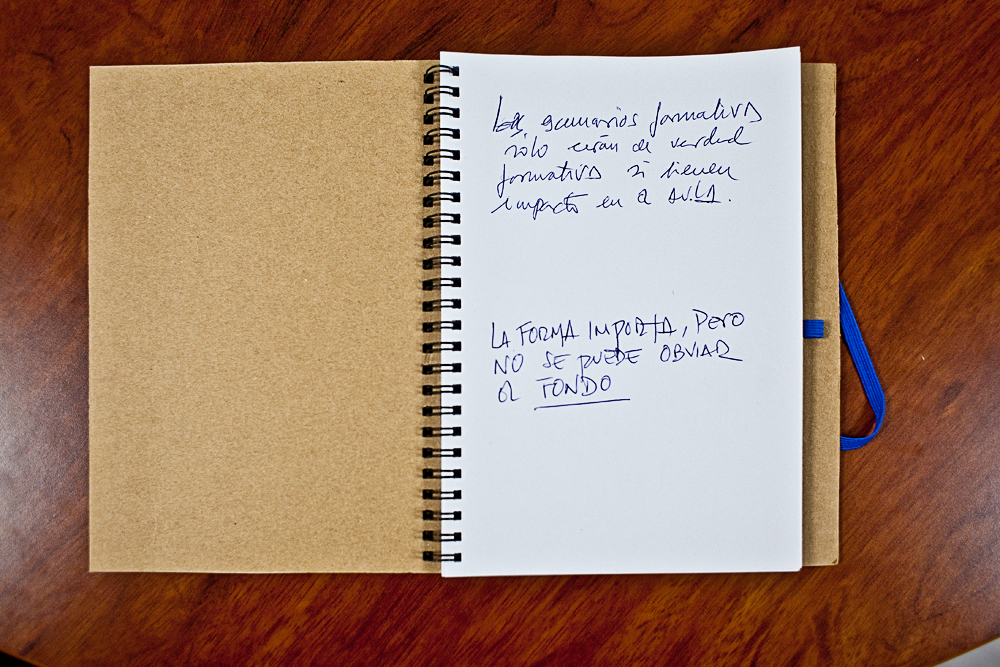 Los escenarios formativos
sólo serán de verdad
formativos si tienen
impacto en el AULA.
LA FORMA IMPORTA, PERO
NO SE PUEDE OBVIAR
el FONDO